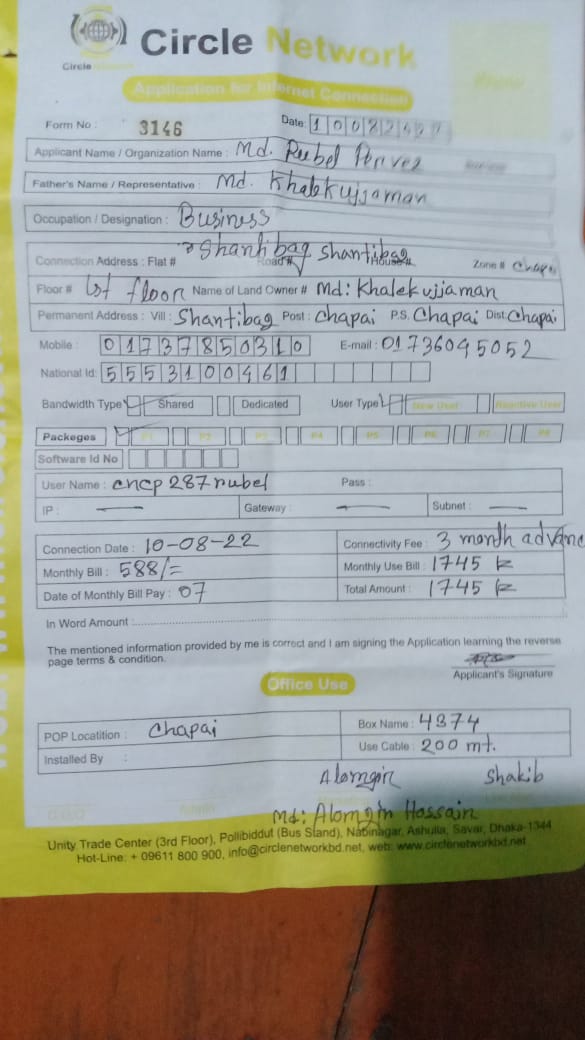 Circle Network
Circle
Application for Internet Connection
Form No : 3146 Date:
Applicant Name / Organization Name : Md. Rubel Pervez
Father's Name / Representative : Md. Khalekujjaman
Occupation / Designation : Business
Connection Address : Flat # Shantibag Road # Shantibag House # Zone # Chapai
Floor # 1st floor Name of Land Owner # Md: Khalekujjaman
Permanent Address : Vill : Shantibag Post : Chapai P.S. Chapai Dist: Chapai
Mobile : 01737850310 E-mail : 01736045052
National Id: 5553100461
Bandwidth Type Shared Dedicated User Type New User Reactive User
Packeges P1 P2 P3 P4 P5 P6 P7 P8
Software Id No
User Name : cncp287rubel Pass :
IP : — Gateway : — Subnet : —
Connection Date : 10-08-22 Connectivity Fee : 3 month advance
Monthly Bill : 588/= Monthly Use Bill : 1745 tk
Date of Monthly Bill Pay : 07 Total Amount : 1745 tk
In Word Amount :
The mentioned information provided by me is correct and I am signing the Application learning the reverse
page terms & condition.
Applicant's Signature
Office Use
POP Locatition : Chapai Box Name : 4374
Installed By : Use Cable : 200 mt.
Alomgir Shakib
Md: Alomgir Hossain
Unity Trade Center (3rd Floor), Pollibiddut (Bus Stand), Nabinagar, Ashulia, Savar, Dhaka-1344
Hot-Line: + 09611 800 900, info@circlenetworkbd.net, web: www.circlenetworkbd.net